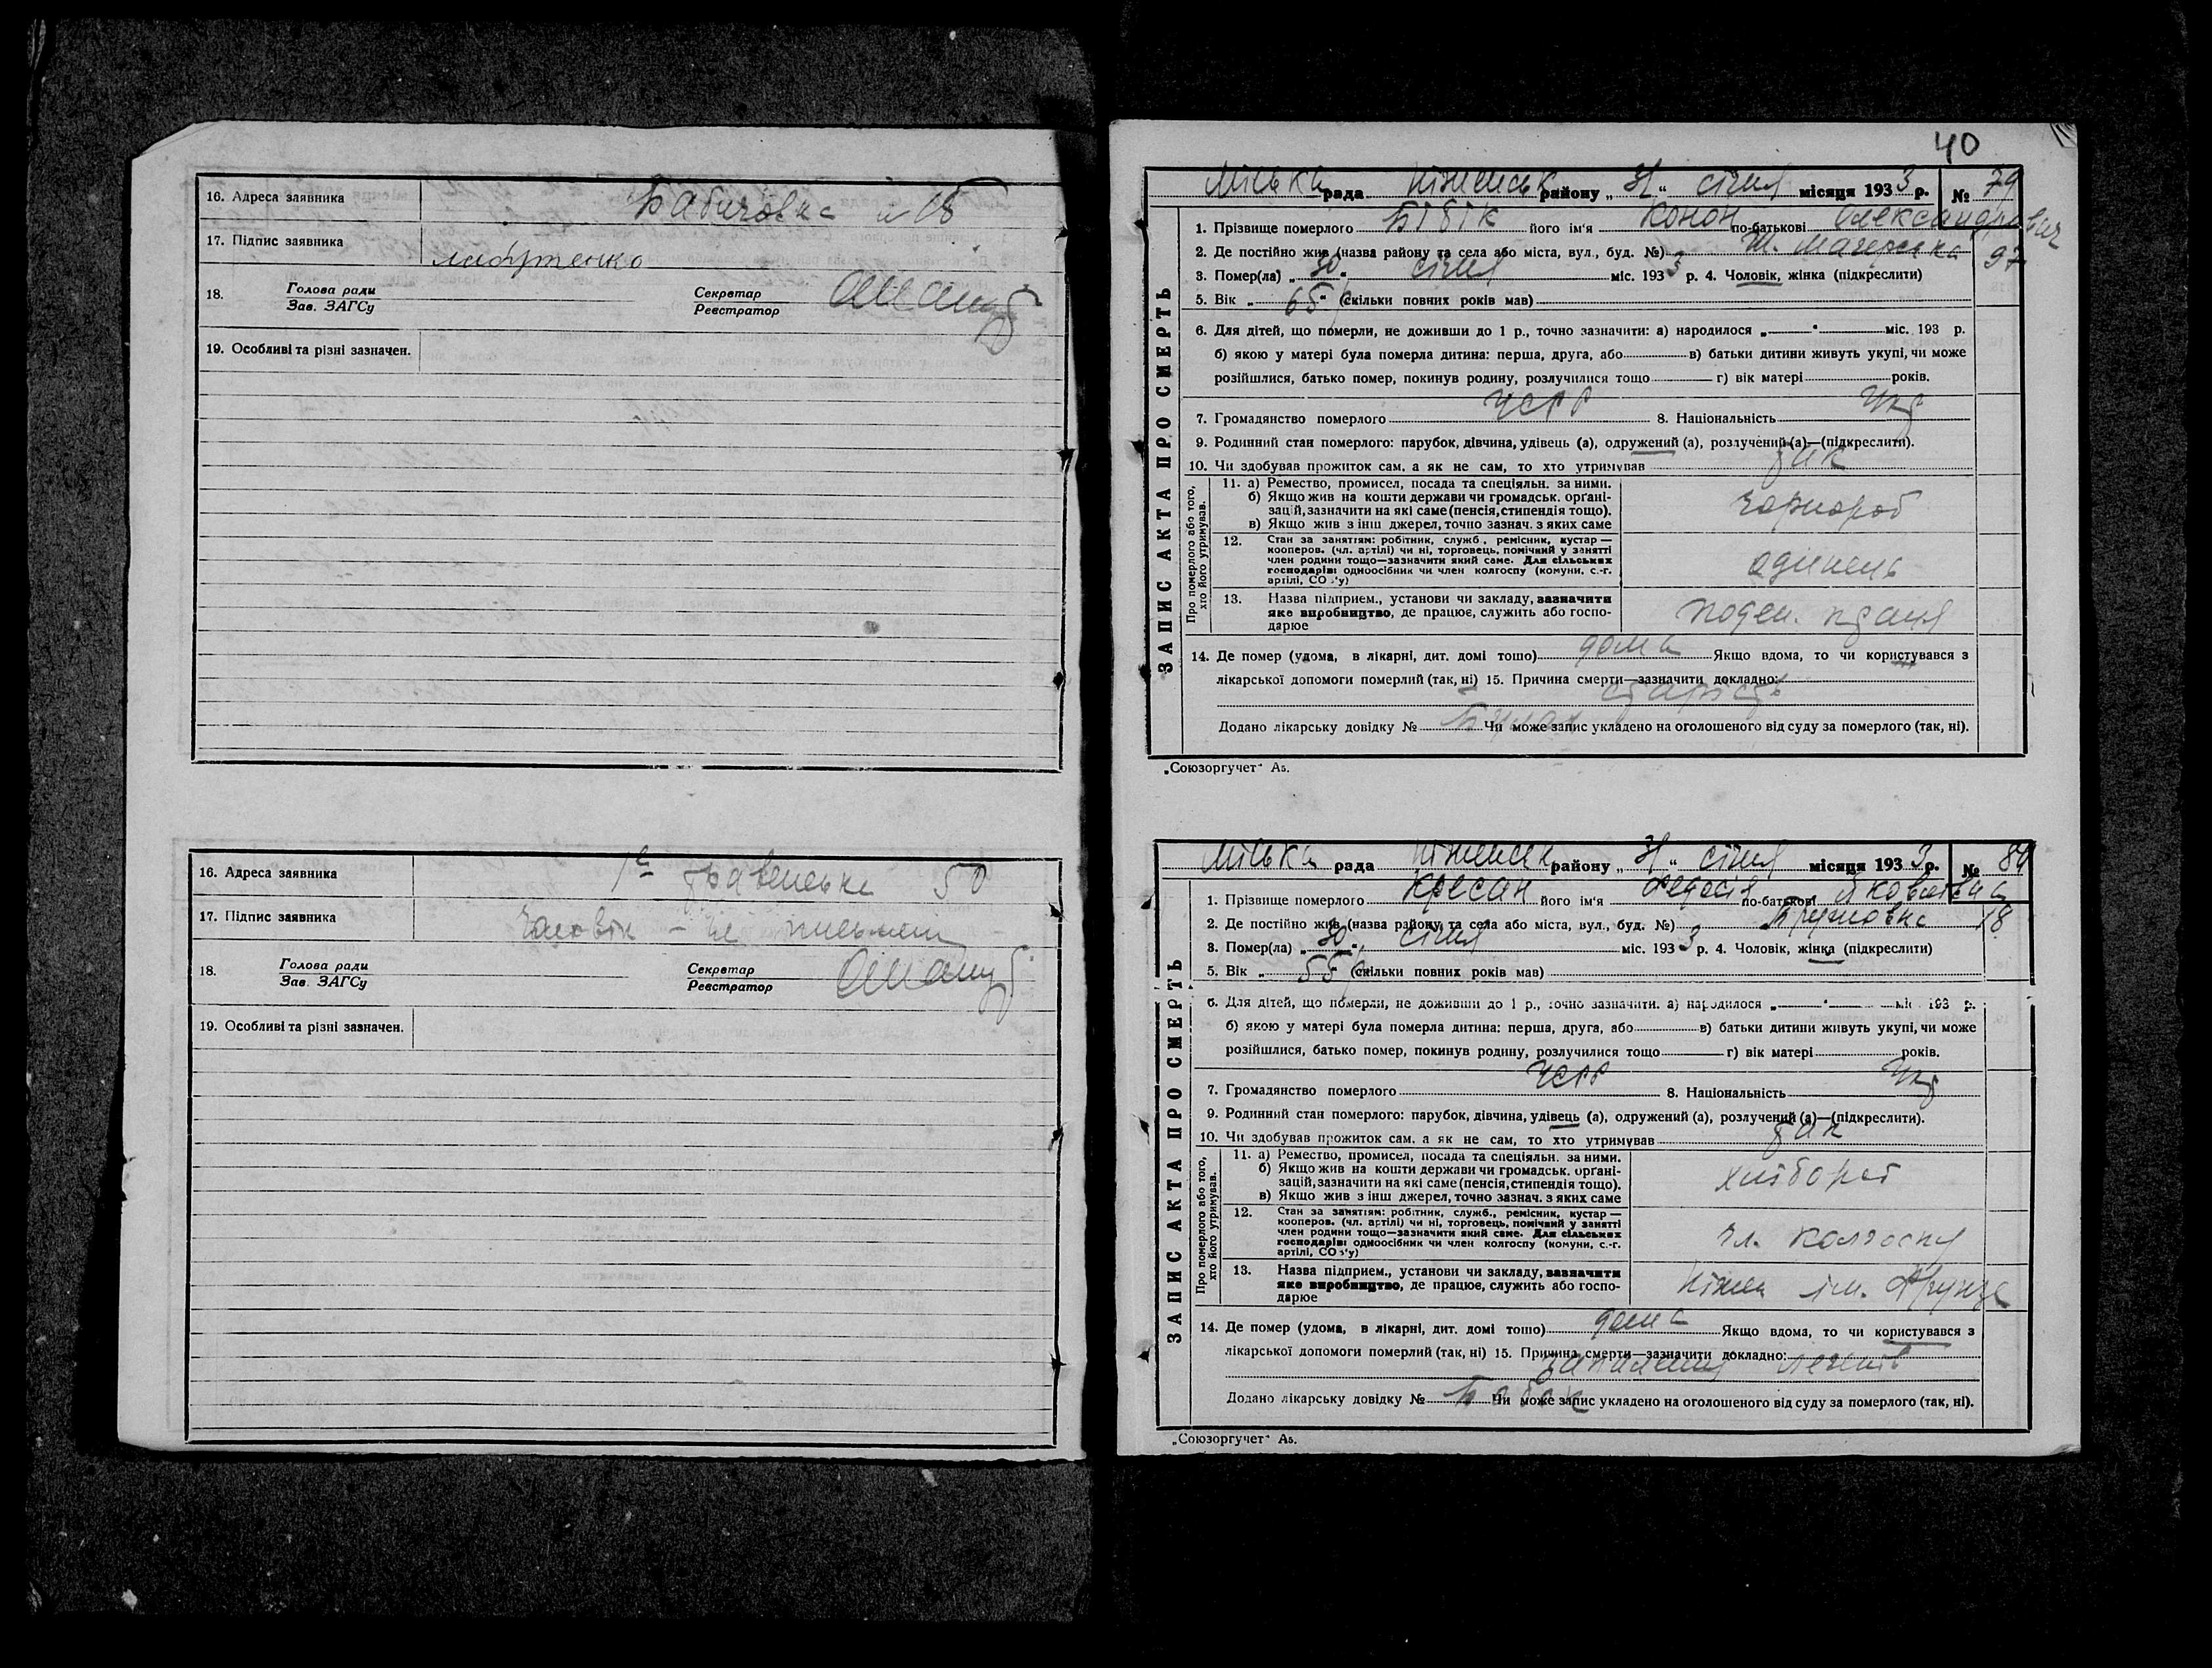 16. Адреса заявника Бабичовка № 15
17. Підпис заявника
18. Голова ради Секретар
Зав. ЗАГСу Реєстратор
19. Особливі та різні зазначен.
16. Адреса заявника 50
17. Підпис заявника чоловік - не письмен
18. Голова ради Секретар
Зав. ЗАГСу Реєстратор
19. Особливі та різні зазначен.
40
ЗАПИС АКТА ПРО СМЕРТЬ
Міська рада Ніженськ району „31“ січня місяця 1933 р. № 79
1. Прізвище померлого Бібік його ім'я Конон по-батькові Олександрович
2. Де постійно жив (назва району та села або міста, вул., буд. №) Магерська 97
3. Помер(ла) „30“ січня міс. 1933 р. 4. Чоловік, жінка (підкреслити)
5. Вік „65“ (скільки повних років мав)
6. Для дітей, що померли, не доживши до 1 р., точно зазначити: а) народилося „ “ міс. 193 р.
б) якою у матері була померла дитина: перша, друга, або в) батьки дитини живуть укупі, чи може
розійшлися, батько помер, покинув родину, розлучилися тощо г) вік матері років.
7. Громадянство померлого УСРР 8. Національність Укр
9. Родинний стан померлого: парубок, дівчина, удівець (а), одружений (а), розлучений (а)—(підкреслити).
10. Чи здобував прожиток сам, а як не сам, то хто утримував так
Про померлого або того, хто його утримував.
11. а) Ремество, промисел, посада та спеціяльн. за ними.
б) Якщо жив на кошти держави чи громадськ. орґані-
зацій, зазначити на які саме (пенсія, стипендія тощо).
в) Якщо жив з інш джерел, точно зазнач. з яких саме
чорнороб
12. Стан за заняттям: робітник, служб., ремісник, кустар —
кооперов. (чл. артілі) чи ні, торговець, помічний у занятті
член родини тощо—зазначити який саме. Для сільських
господарів: одноосібник чи член колгоспу (комуни, с.-г.
артілі, СОЗ'у)
одинець
13. Назва підприєм., установи чи закладу, зазначити
яке виробництво, де працює, служить або госпо-
дарює
поден. праця
14. Де помер (удома, в лікарні, дит. домі тощо) дома Якщо вдома, то чи користувався з
лікарської допомоги померлий (так, ні) 15. Причина смерти—зазначити докладно:
старість
Додано лікарську довідку № Чи може запис укладено на оголошеного від суду за померлого (так, ні).
„Союзоргучет“ А5.
ЗАПИС АКТА ПРО СМЕРТЬ
Міська рада Ніженськ району „31“ січня місяця 1933 р. № 80
1. Прізвище померлого Кресан його ім'я Федосія по-батькові Яковлевна
2. Де постійно жив (назва району та села або міста, вул., буд. №) 18
3. Помер(ла) „30“ січня міс. 1933 р. 4. Чоловік, жінка (підкреслити)
5. Вік „55“ (скільки повних років мав)
6. Для дітей, що померли, не доживши до 1 р., точно зазначити: а) народилося „ “ міс. 193 р.
б) якою у матері була померла дитина: перша, друга, або в) батьки дитини живуть укупі, чи може
розійшлися, батько помер, покинув родину, розлучилися тощо г) вік матері років.
7. Громадянство померлого УСРР 8. Національність Укр
9. Родинний стан померлого: парубок, дівчина, удівець (а), одружений (а), розлучений (а)—(підкреслити).
10. Чи здобував прожиток сам, а як не сам, то хто утримував так
Про померлого або того, хто його утримував.
11. а) Ремество, промисел, посада та спеціяльн. за ними.
б) Якщо жив на кошти держави чи громадськ. орґані-
зацій, зазначити на які саме (пенсія, стипендія тощо).
в) Якщо жив з інш джерел, точно зазнач. з яких саме
хлібороб
12. Стан за заняттям: робітник, служб., ремісник, кустар —
кооперов. (чл. артілі) чи ні, торговець, помічний у занятті
член родини тощо—зазначити який саме. Для сільських
господарів: одноосібник чи член колгоспу (комуни, с.-г.
артілі, СОЗ'у)
чл. колгоспу
13. Назва підприєм., установи чи закладу, зазначити
яке виробництво, де працює, служить або госпо-
дарює
Ніжен ім. Фрунзе
14. Де помер (удома, в лікарні, дит. домі тощо) дома Якщо вдома, то чи користувався з
лікарської допомоги померлий (так, ні) 15. Причина смерти—зазначити докладно:
запалення легенів
Додано лікарську довідку № Чи може запис укладено на оголошеного від суду за померлого (так, ні).
„Союзоргучет“ А5.